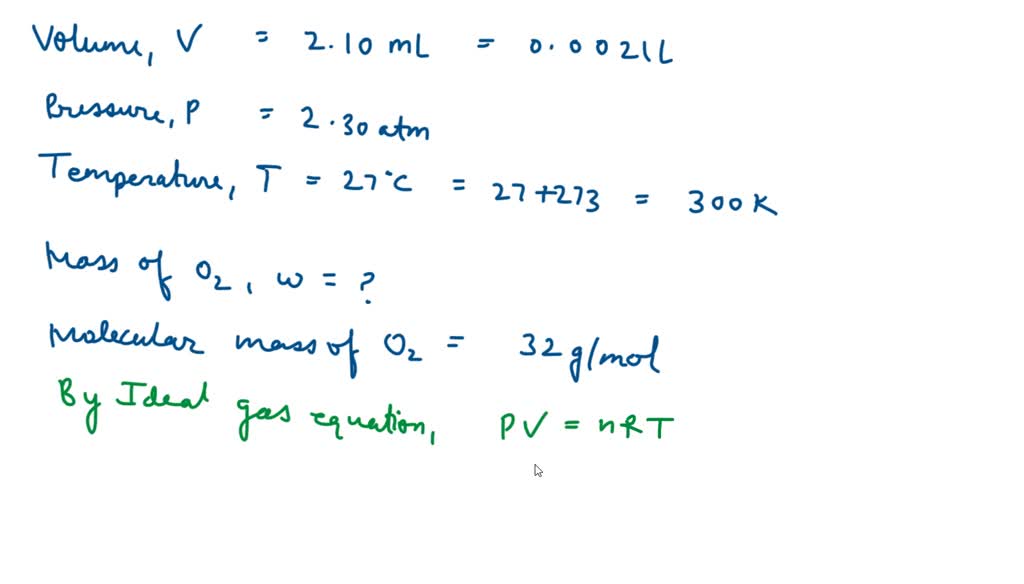 Volume, V = 2.10 mL = 0.0021L
Pressure, P = 2.30 atm
Temperature, T = 27°C = 27+273 = 300K
Mass of O2, w = ?
Molecular mass of O2 = 32 g/mol
By Ideal gas equation, PV = nRT